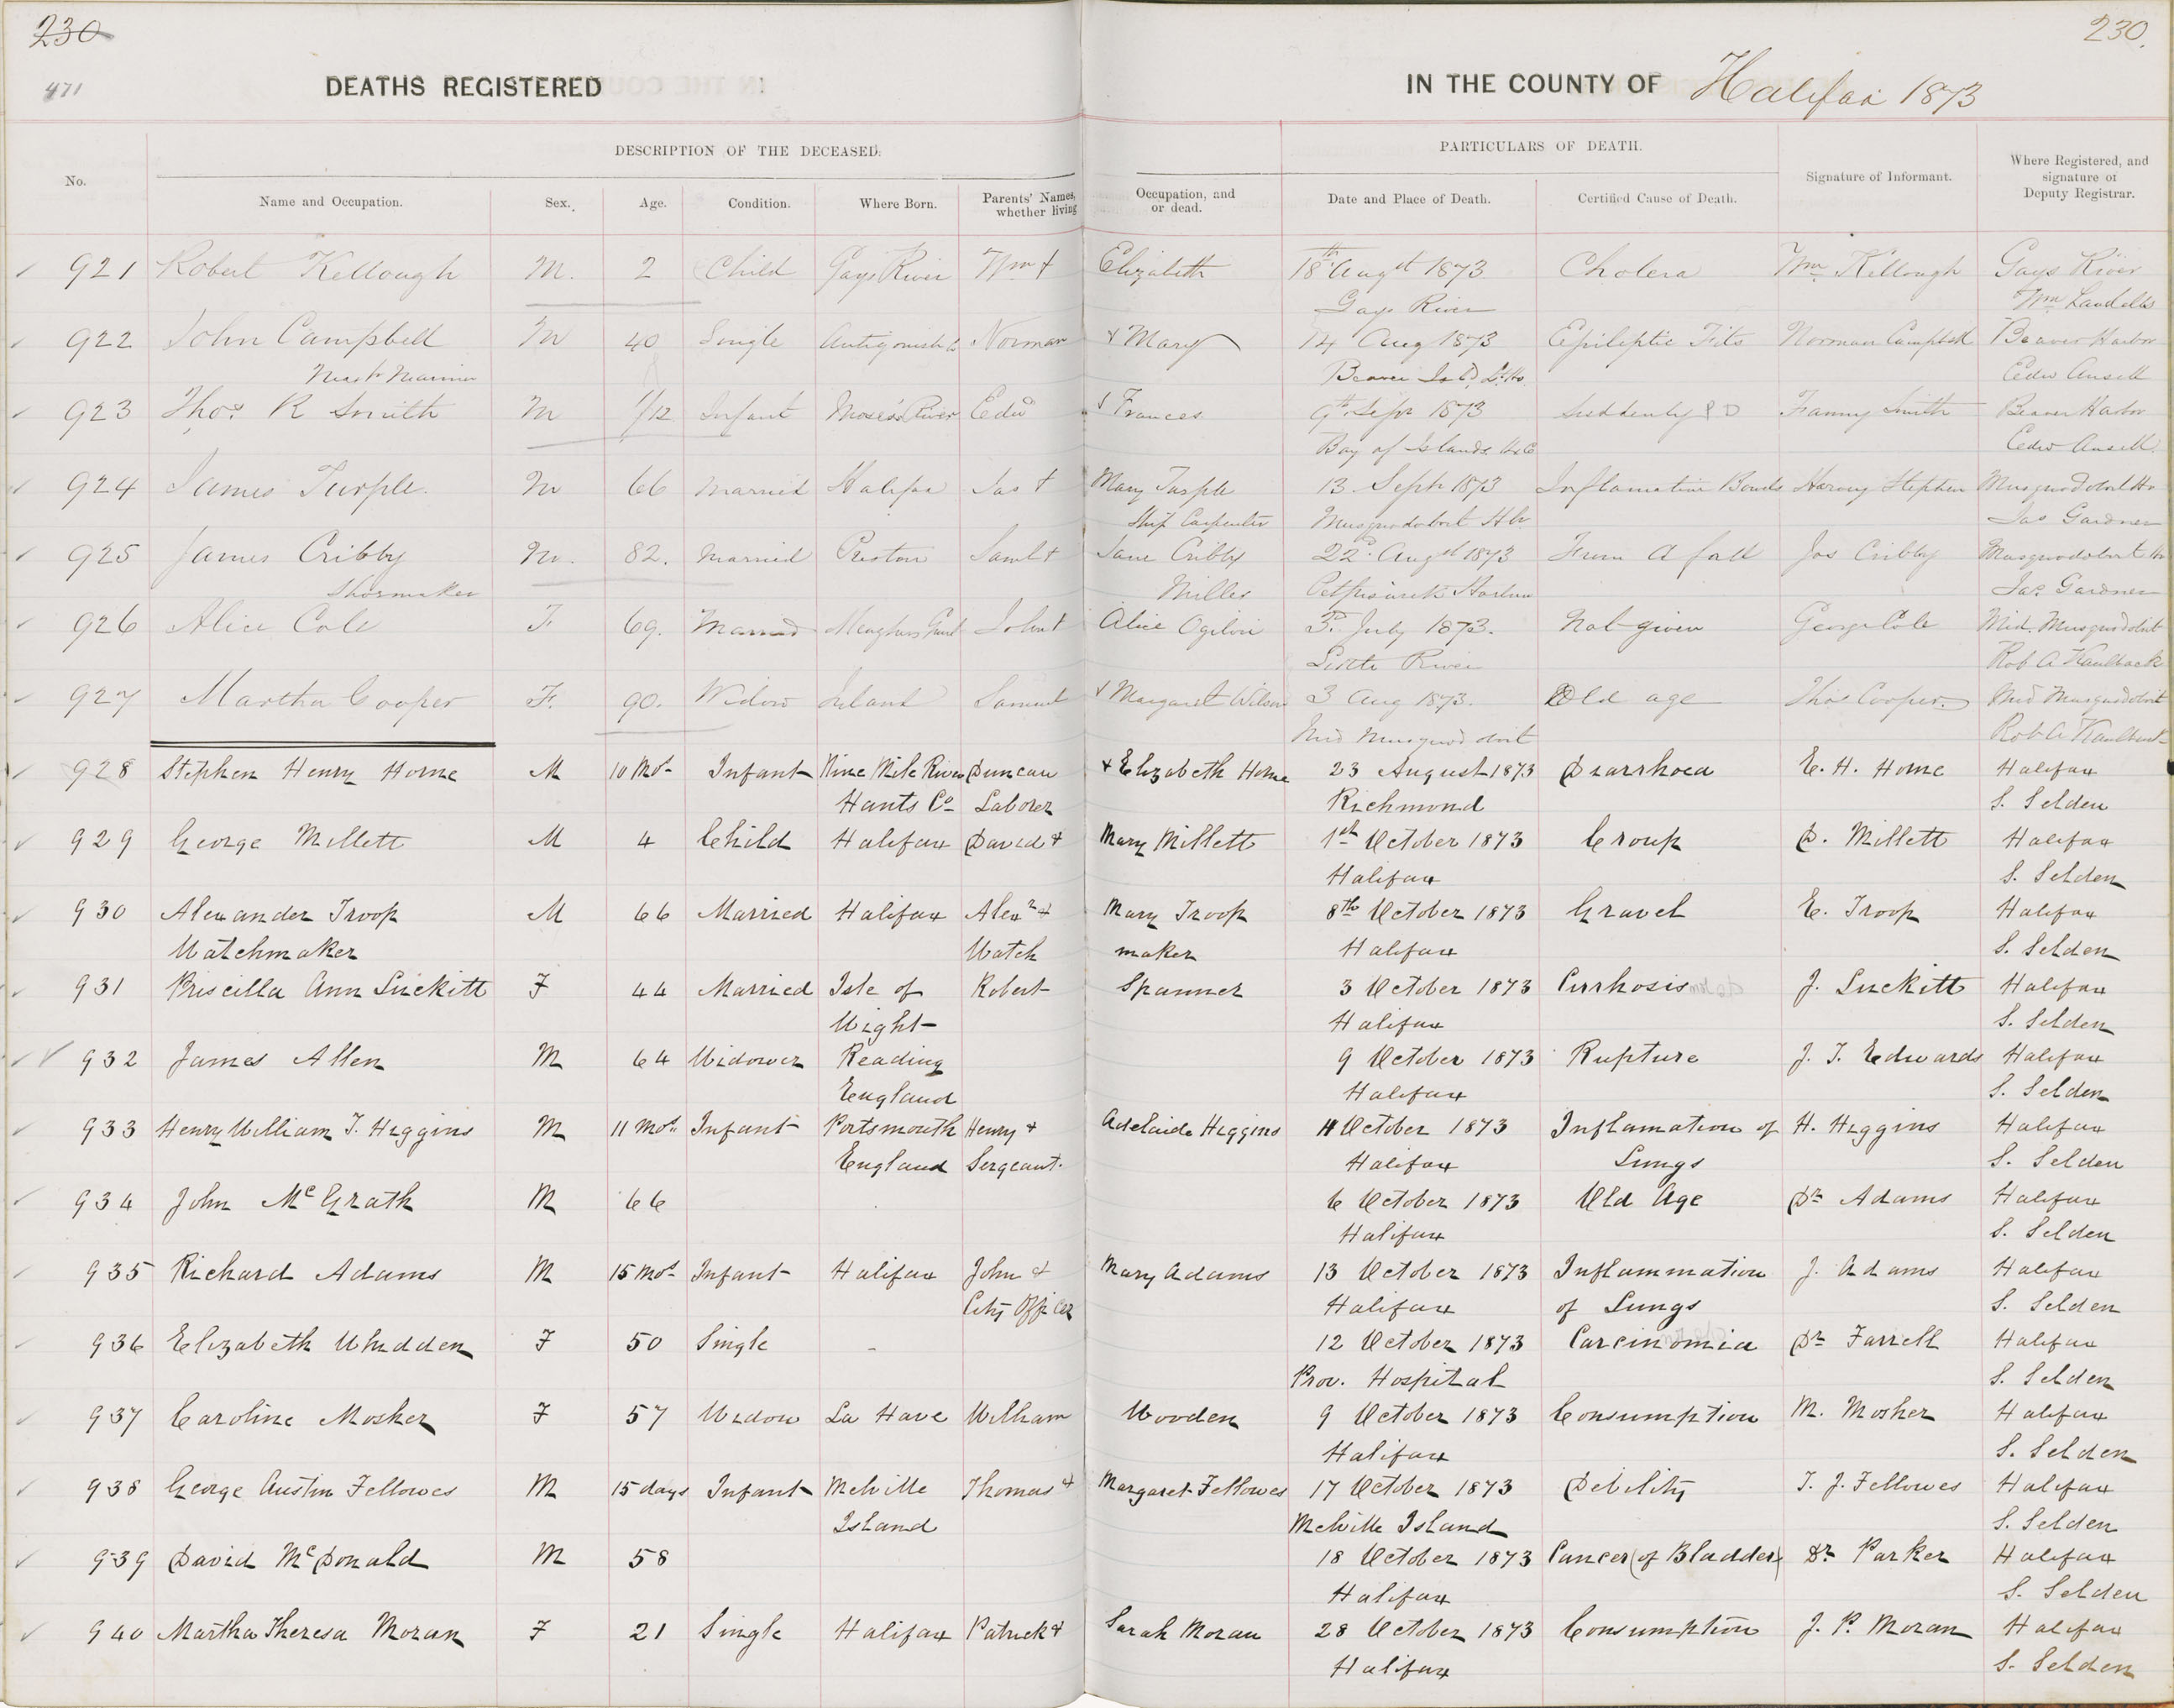 230
230.
471
DEATHS REGISTERED IN THE COUNTY OF Halifax 1873
DESCRIPTION OF THE DECEASED. PARTICULARS OF DEATH.
No. Name and Occupation. Sex. Age. Condition. Where Born. Parents' Names, whether living Occupation, and or dead. Date and Place of Death. Certified Cause of Death. Signature of Informant. Where Registered, and signature of Deputy Registrar.
921 Robert Kellough M. 2 Child Gays River Wm & Elizabeth 18th Augst 1873 Cholera Wm Kellough Gays River
Gays River Wm Landells
922 John Campbell M 40 Single Antigonish Norman & Mary 14 Aug 1873 Epileptic Fits Norman Campbell Beaver Harbor
Mastr Mariner Beaver Isld Lt Ho Edw Ansell
923 Thos R Smith M 1/12 Infant Moses River Edwd & Frances 9th Sepr 1873 Suddenly Fanny Smith Beaver Harbor
Bay of Islands Edw Ansell
924 James Turple M 66 Married Halifax Jas & Mary Turple 13 Sept 1873 Inflamation Bowels Harvey Stephen Musquodoboit Hr
Ship Carpenter Musquodoboit Hbr Jas Gardner
925 James Cribby M. 82. Married Preston Saml & Jane Cribby 22d Augst 1873 From a fall Jas Cribby Musquodoboit Hr
Shoemaker Miller Petpiswick Harbour Jas Gardner
926 Alice Cole F 69. Married Meaghers Grant John & Alice Ogilvie 3d July 1873. Not given George Cole Mid. Musquodoboit
Little River Rob A Kaulback
927 Martha Cooper F. 90. Widow Ireland Samuel & Margaret Wilson 3 Aug 1873. Old age Thos Cooper Mid Musquodoboit
Mid Musquodoboit Rob A Kaulback
928 Stephen Henry Horne M 10 Mos Infant Nine Mile River Duncan & Elizabeth Horne 23 August 1873 Diarrhoea E. H. Horne Halifax
Hants Co Laborer Richmond S. Selden
929 George Millett M 4 Child Halifax David & Mary Millett 1st October 1873 Croup D. Millett Halifax
Halifax S. Selden
930 Alexander Troop M 66 Married Halifax Alexr & Mary Troop 8th October 1873 Gravel E. Troop Halifax
Watchmaker Watch maker Halifax S. Selden
931 Priscilla Ann Luckitt F 44 Married Isle of Robert Spanner 3 October 1873 Cirrhosis J. Luckitt Halifax
Wight Halifax S. Selden
932 James Allen M 64 Widower Reading 9 October 1873 Rupture J. T. Edwards Halifax
England Halifax S. Selden
933 Henry William T. Higgins M 11 Mos. Infant Portsmouth Henry & Adelaide Higgins 11 October 1873 Inflamation of H. Higgins Halifax
England Sergeant. Halifax Lungs S. Selden
934 John McGrath M 66 6 October 1873 Old Age Dr Adams Halifax
Halifax S. Selden
935 Richard Adams M 15 Mos Infant Halifax John & Mary Adams 13 October 1873 Inflammation J. Adams Halifax
City Officer Halifax of Lungs S. Selden
936 Elizabeth Whidden F 50 Single - 12 October 1873 Carcinomia Dr Farrell Halifax
Prov. Hospital S. Selden
937 Caroline Mosher F 57 Widow La Have William Wooden 9 October 1873 Consumption M. Mosher Halifax
Halifax S. Selden
938 George Austin Fellowes M 15 days Infant Melville Thomas & Margaret Fellowes 17 October 1873 Debility T. J. Fellowes Halifax
Island Melville Island S. Selden
939 David McDonald M 58 18 October 1873 Cancer (of Bladder) Dr Parker Halifax
Halifax S. Selden
940 Martha Theresa Moran F 21 Single Halifax Patrick & Sarah Moran 28 October 1873 Consumption J. P. Moran Halifax
Halifax S. Selden